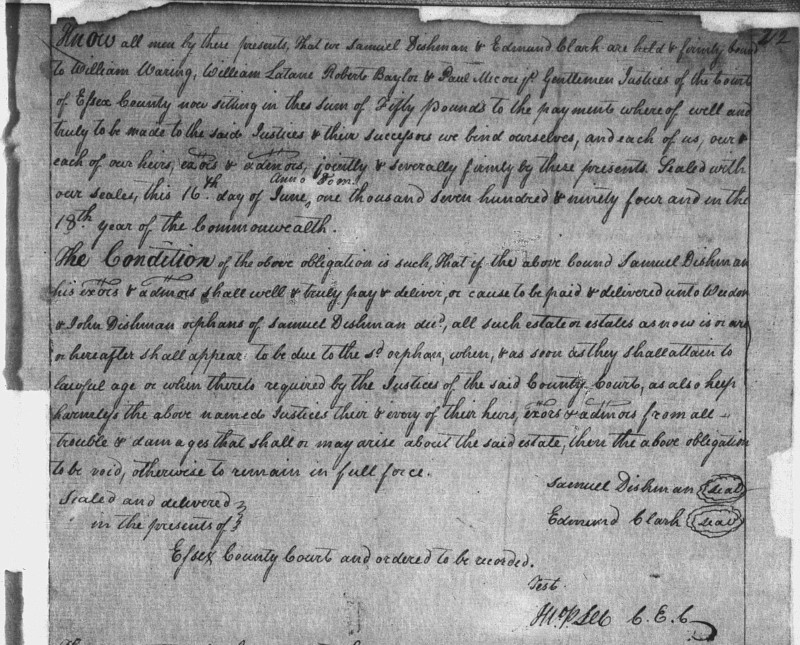 412
Know all men by these presents, That we Samuel Dishman & Edmund Clark are held & firmly bound
to William Waring, William Latane Robert Baylor & Paul Micou jr. Gentlemen Justices of the Court
of Essex County now sitting in the sum of Fifty Pounds to the payment whereof well and
truly to be made to the said Justices & their successors we bind ourselves, and each of us, our &
each of our heirs, exōrs & adminōrs, jointly & severally firmly by these presents. Sealed with
our seales, this 16th. day of June, Anno Dom: one thousand seven hundred & ninety four and in the
18th year of the Commonwealth.
The Condition of the above obligation is such, That if the above bound Samuel Dishman
his exōrs & adminōrs shall well & truly pay & deliver, or cause to be paid & delivered unto Weedon
& John Dishman orphans of Samuel Dishman decd., all such estate or estates as now is or are
or hereafter shall appear to be due to the sd. orphan, when, & as soon as they shall attain to
lawful age or when thereto required by the Justices of the said County Court, as also keep
harmelyss the above named Justices their & every of their heirs, exōrs & adminōrs from all
trouble & damages that shall or may arise about the said estate, then the above obligation
to be void, otherwise to remain in full force.
Samuel Dishman (seal)
Edmund Clark (seal)
Sealed and delivered
in the presents of
Essex County Court and ordered to be recorded.
Test.
C. E. C